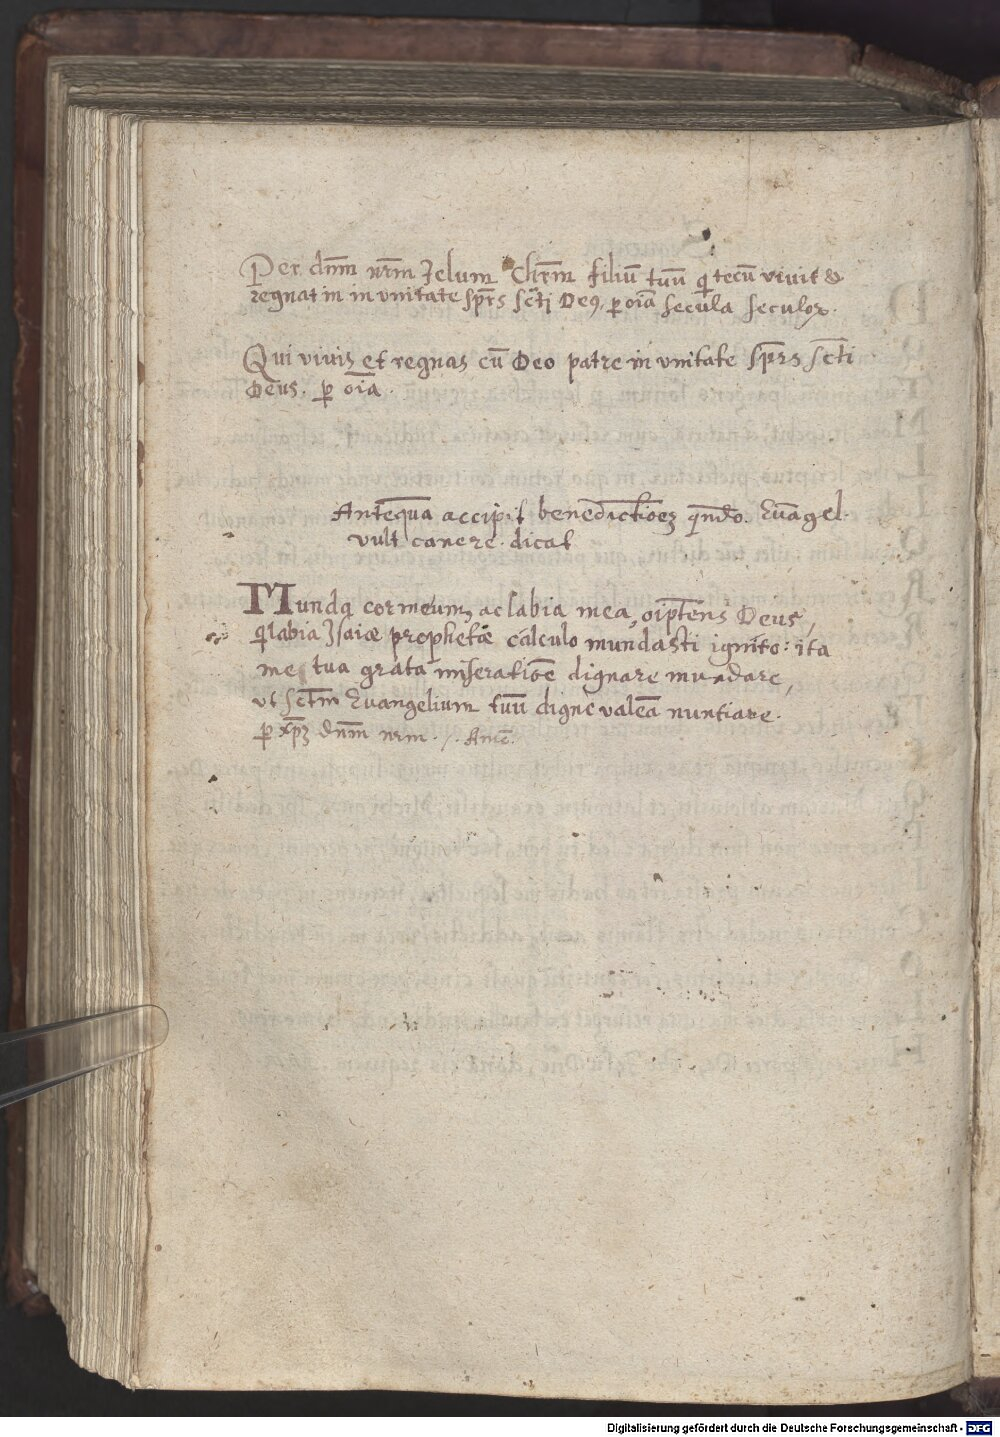 Per dn̄m nr̄m Jesum Chr̄m filiū tuū q̄ tecū vivit &
regnat in in vnitate sp̄rs sc̄ti Deꝰ. ꝑ oīa secula seculoꝝ.
Qui vivis et regnas cū Deo patre in vnitate sp̄rs sc̄ti
Deus. ꝑ oīa.
Anteq̄ua accipit benedictioēꝫ qn̄do. Euāgel.
vult canere. dicat
Munda cor meum, ac labia mea, oīptens Deus,
q̄ labia Isaiæ prophetæ cálculo mundasti ignito: ita
me tua grata miseratiōe dignare mundare,
vt sct̄m Euangelium tuū digne valeā nuntiare.
ꝑ xp̄ꝫ dn̄m nr̄m. Amē.
Digitalisierung gefördert durch die Deutsche Forschungsgemeinschaft - DFG